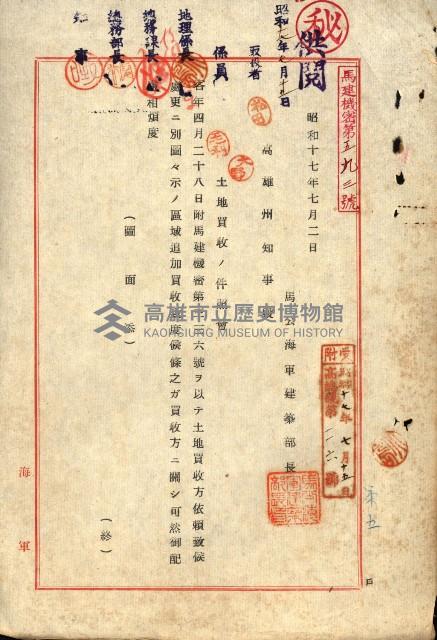 秘
供閲
馬建機密第五九三號
昭和十七年七月二日
馬公海軍建築部長
高雄州知事殿
土地買收ノ件照會
客年四月二十八日附馬建機密第三六號ヲ以テ土地買收方依賴致候
處更ニ別圖々示ノ區域追加買收致度候條之ガ買收方ニ關シ可然御配
慮相煩度
（圖面添）
（終）
海軍
昭和十七年七月十五日
取扱者
係員
地理係長
地務課長
總務部長
知事
受附
十七年七月十五日
高雄市立歷史博物館
KAOHSIUNG MUSEUM OF HISTORY